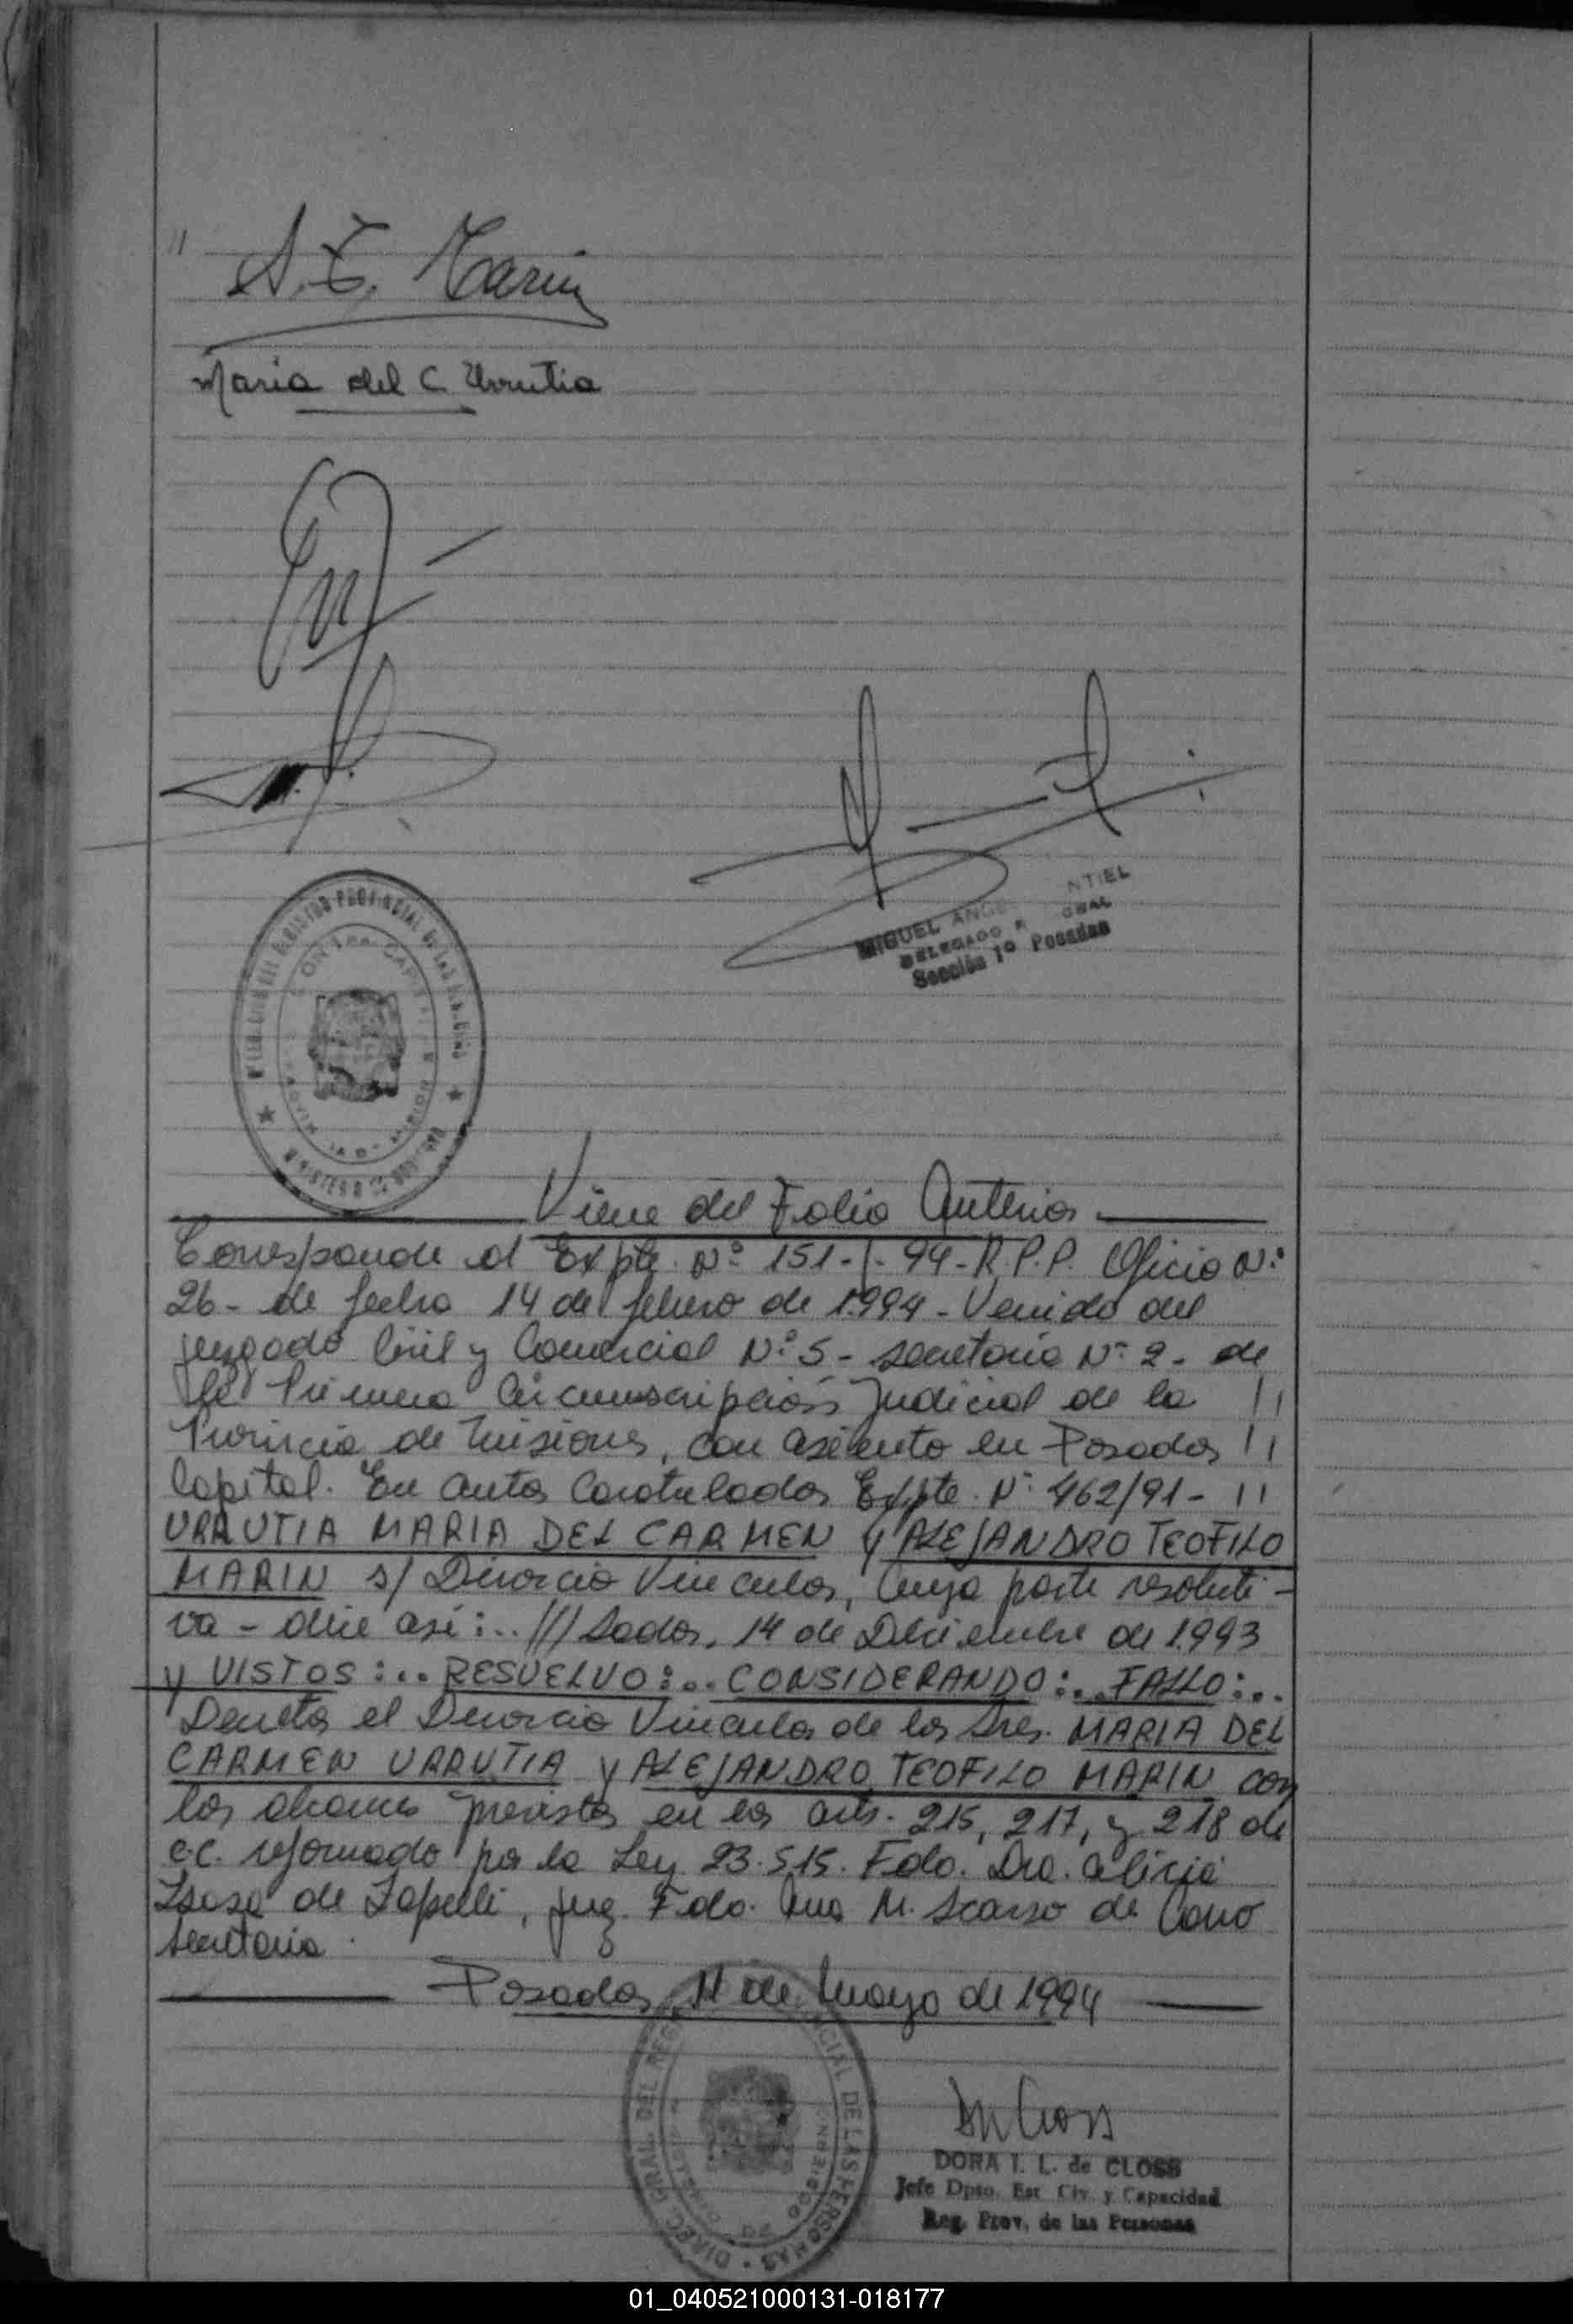 "
A. T. Marin
Maria del C. Urrutia
MIGUEL ANGE NTIEL
DELEGADO R GRAL
Sección 1º Posadas
Viene del Folio Anterior
Corresponde al Expte. Nº 151-1-94-R.P.P. Oficio Nº
26- de fecha 14 de febrero de 1.994- Venido del
juzgado Civil y Comercial Nº 5- secretaria Nº 2- de
la Primera Circunscripción Judicial de la //
Provincia de Misiones, con asiento en Posadas //
Capital. En autos Caratulados Expte. Nº 462/91- //
URRUTIA MARIA DEL CARMEN y ALEJANDRO TEOFILO
MARIN s/ Divorcio Vincular, Cuya parte resoluti-
va - dice así:.. ///sadas, 14 de Diciembre de 1.993
y VISTOS:.. RESUELVO:.. CONSIDERANDO:.. FALLO:..
Decretar el Divorcio Vincular de los Sres. MARIA DEL
CARMEN URRUTIA y ALEJANDRO TEOFILO MARIN con
los alcances previstos en los arts. 215, 217, y 218 del
C.C. reformado por la Ley 23.515. Fdo. Dra. Alicia
de Zapelli, Juez. Fdo. Ana M. Scarso de Cano
Secretaria.
Posadas, 11 de Mayo de 1994
DIREC. GRAL. DEL REG NCIAL DE LAS PERSONAS
DORA I. L. de CLOSS
Jefe Dpto. Est. Civ. y Capacidad
Reg. Prov. de las Personas
01_040521000131-018177